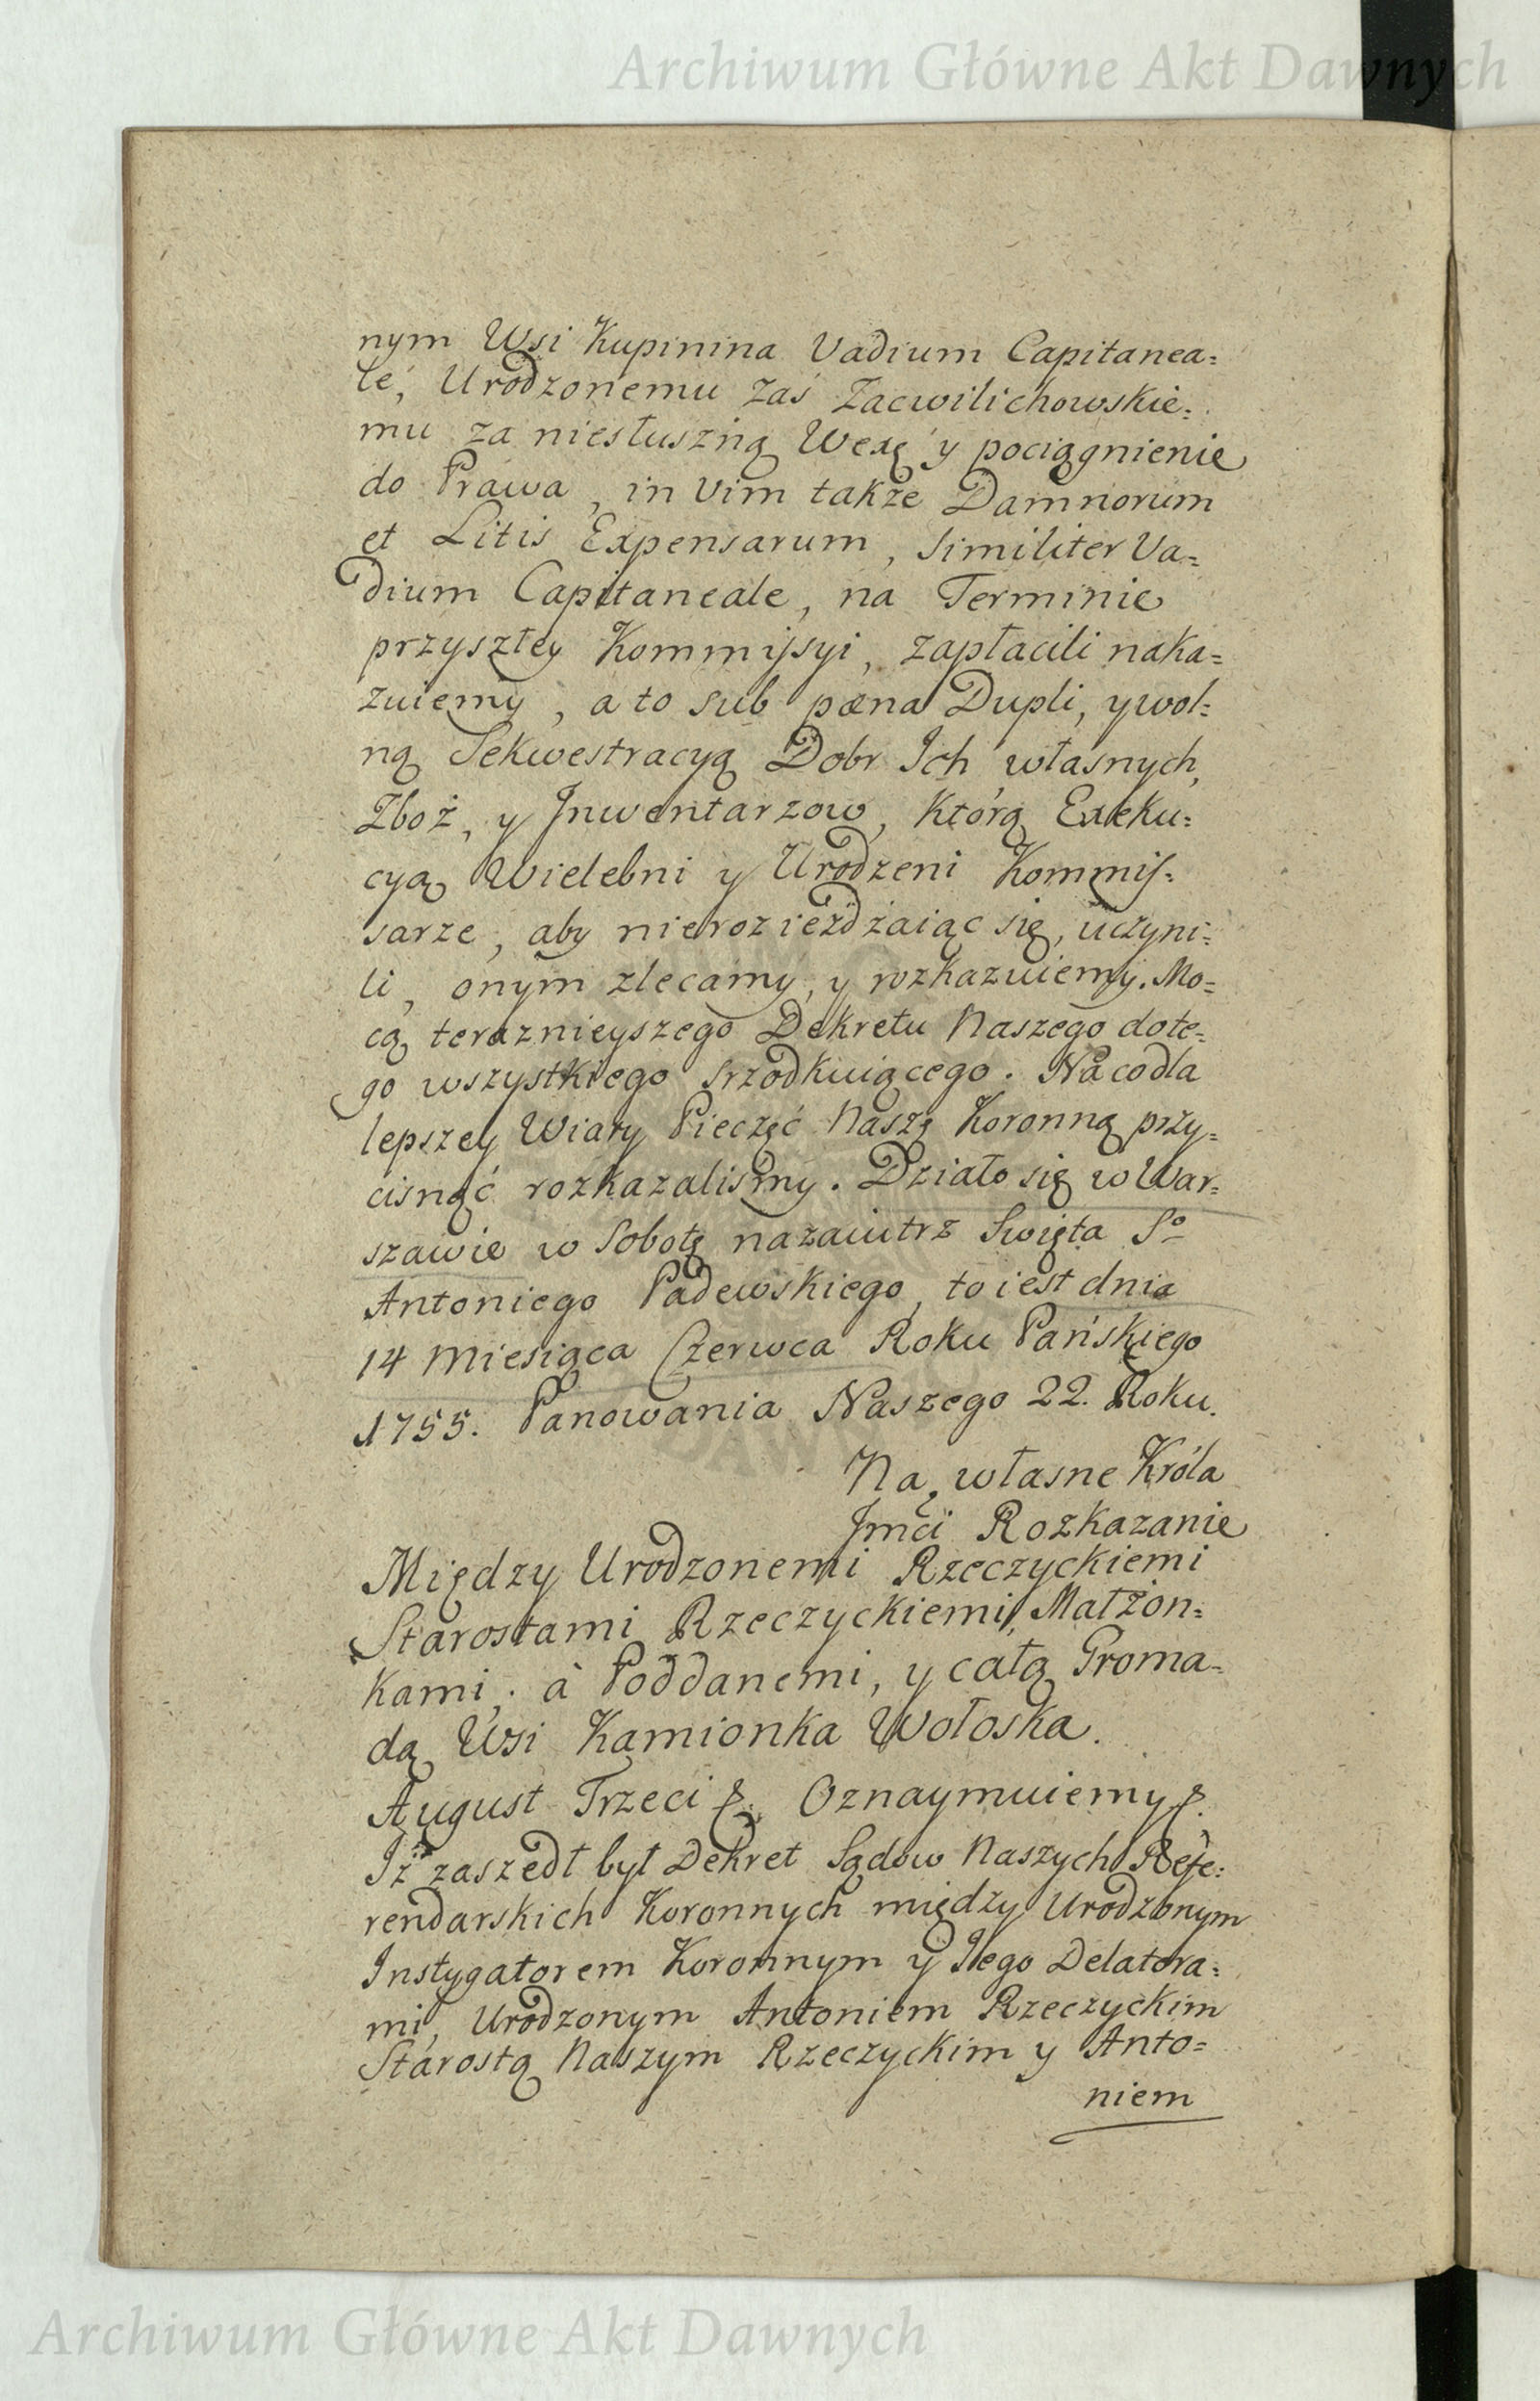 Archiwum Główne Akt Dawnych
nym Wsi Kupinina Vadium Capitanea=
le, Urodzonemu zaś Zacwilichowskie=
mu za niesłuszną Wexę y pociągnienie
do Prawa, in vim także Damnorum
et Litis Expensarum, similiter Va=
dium Capitaneale, na Terminie
przyszłey Kommissyi, zapłacili naka=
zuiemy, a to sub pæna Dupli, y wol=
ną Sekwestracyą Dobr Ich własnych,
Zboż, y Inwentarzow, którą Exeku=
cyą Wielebni y Urodzeni Kommis=
sarze, aby nierozieżdżaiąc się, uczyni=
li, onym zlecamy, y rozkazuiemy. Mo=
cą teraznieyszego Dekretu Naszego do te=
go wszystkiego srzodkuiącego. Na co dla
lepszey Wiary Pieczęć Naszę Koronną przy=
cisnąć rozkazalismy. Działo się w War=
szawie w Sobotę nazaiutrz Swięta So
Antoniego Padewskiego, to iest dnia
14 Miesiąca Czerwca Roku Pańskiego
1755. Panowania Naszego 22. Roku.
Na własne Króla
Jmci Rozkazanie
Między Urodzonemi Rzeczyckiemi
Starostami Rzeczyckiemi, Małżon=
kami. à Poddanemi, y całą Groma=
dą Wsi Kamionka Wołoska.
August Trzeci &. Oznaymuiemy &.
Iż zaszedł był Dekret Sądow Naszych Refe=
rendarskich Koronnych między Urodzonym
Instygatorem Koronnym y Iego Delatora=
mi, Urodzonym Antoniem Rzeczyckim
Starostą Naszym Rzeczyckim y Anto=
niem
Archiwum Główne Akt Dawnych